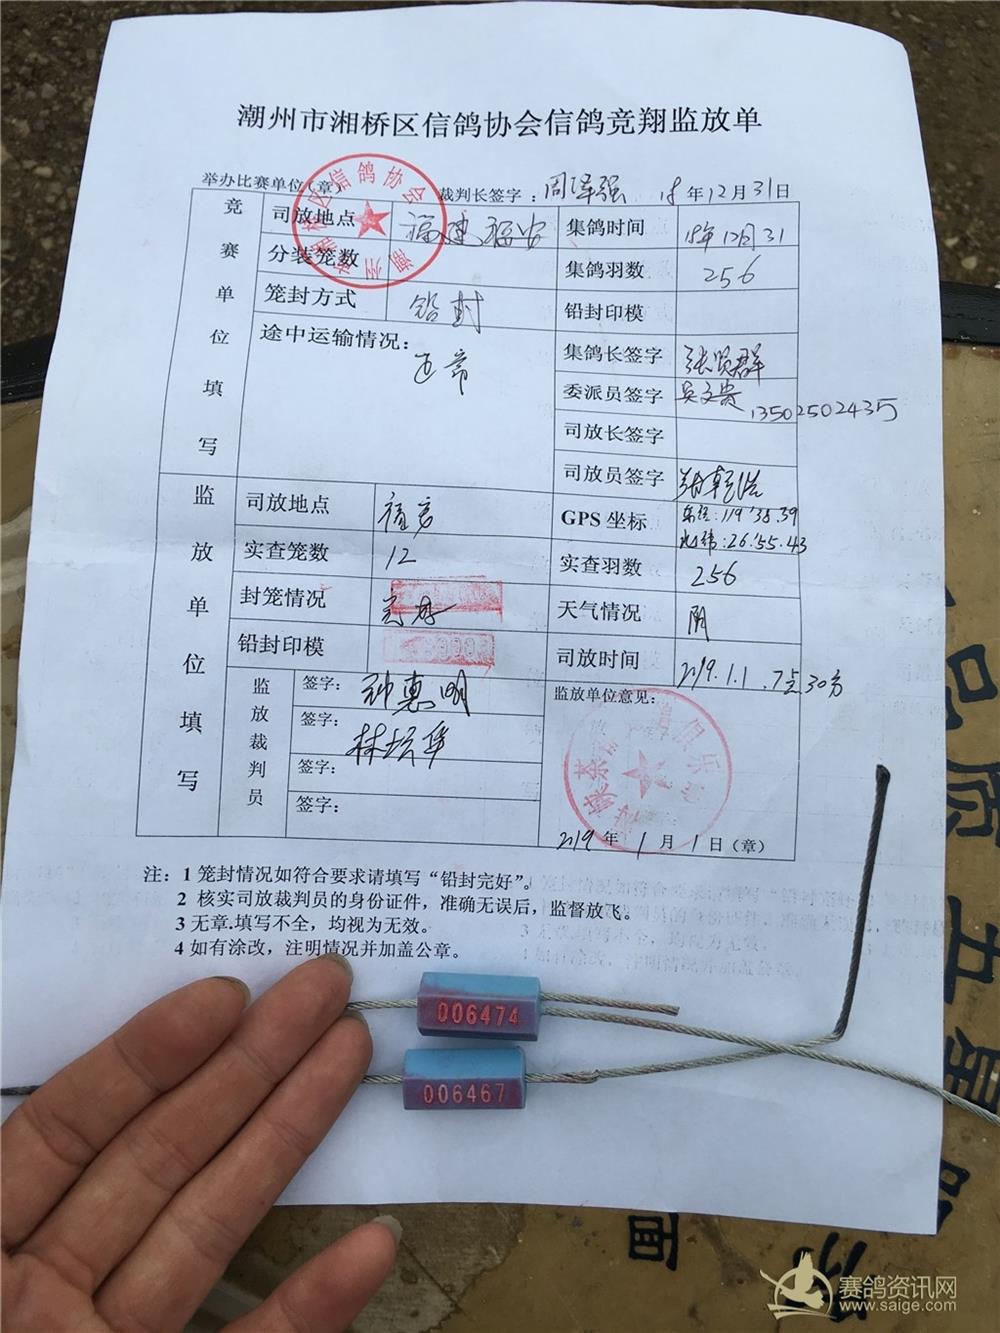 潮州市湘桥区信鸽协会信鸽竞翔监放单
举办比赛单位（章） 裁判长签字：周泽强 18年12月31日
竞赛单位填写
司放地点 福建福安 集鸽时间 18年12月31
分装笼数 集鸽羽数 256
笼封方式 铅封 铅封印模
途中运输情况： 正常
集鸽长签字 张贤群
委派员签字 吴文贵 13502502435
司放长签字
司放员签字
监放单位填写
司放地点 福安 GPS 坐标 东经:119°38.39
北纬:26°55.43
实查笼数 12 实查羽数 256
封笼情况 完好 天气情况 阴
铅封印模 司放时间 2019.1.1.7点30分
监放裁判员
签字：钟惠明
签字：林培华
签字：
签字：
监放单位意见：
2019年1月1日（章）
注：1 笼封情况如符合要求请填写“铅封完好”。
2 核实司放裁判员的身份证件，准确无误后，监督放飞。
3 无章.填写不全，均视为无效。
4 如有涂改，注明情况并加盖公章。
006474
006467
五星
面
赛鸽资讯网
www.saige.com